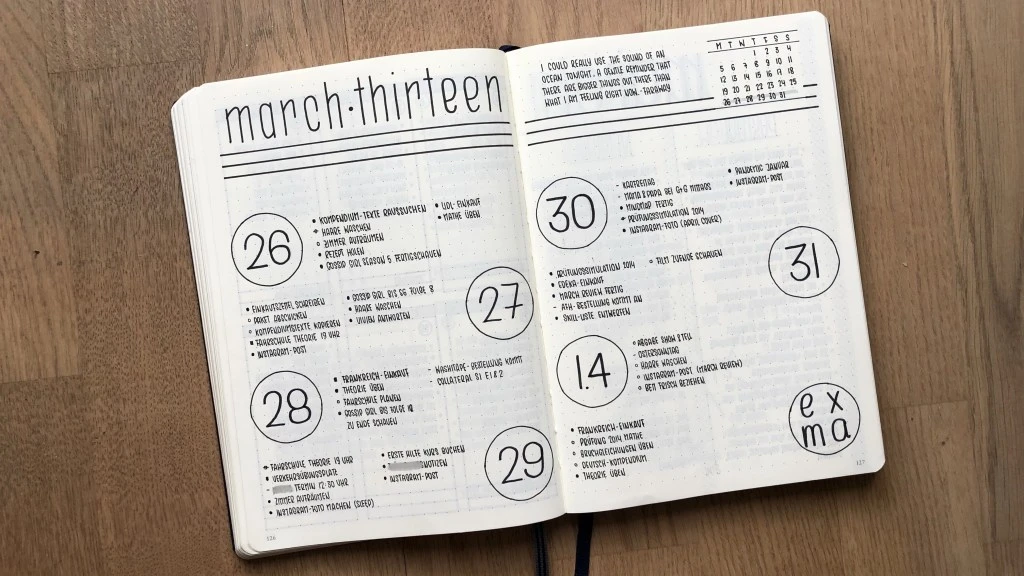 march·thirteen
26
• KOMPENDIUM-TEXTE RAUSSUCHEN
→ HAARE WASCHEN
o ZIMMER AUFRÄUMEN
o REZEPT HOLEN
• GOSSIP GIRL SEASON 5 FERTIGSCHAUEN
• LIDL-EINKAUF
• MATHE ÜBEN
27
• EINKAUFSZETTEL SCHREIBEN
o PAKET ABSCHICKEN
o KOMPENDIUMSTEXTE KOPIEREN
• FAHRSCHULE THEORIE 19 UHR
• INSTAGRAM-POST
• GOSSIP GIRL BIS S6 FOLGE 8
• HAARE WASCHEN
• VIVIEN ANTWORTEN
28
• FRANKREICH-EINKAUF
• THEORIE ÜBEN
o FAHRSCHULE PLANEN
• GOSSIP GIRL BIS FOLGE 10
ZU ENDE SCHAUEN
- WASHITAPE-BESTELLUNG KOMMT
- COLLATERAL S1 E1&2
29
→ FAHRSCHULE THEORIE 19 UHR
• VERKEHRSÜBUNGSPLATZ
- TERMIN 12:30 UHR
• ZIMMER AUFRÄUMEN
• INSTAGRAM-FOTO MACHEN (SLEEP)
• ERSTE HILFE KURS BUCHEN
• NOTIZEN
• INSTAGRAM-POST
126
I COULD REALLY USE THE SOUND OF AN
OCEAN TONIGHT. A GENTLE REMINDER THAT
THERE ARE BIGGER THINGS OUT THERE THAN
WHAT I AM FEELING RIGHT NOW.-FARAWAY
M T W T F S S
1 2 3 4
5 6 7 8 9 10 11
12 13 14 15 16 17 18
19 20 21 22 23 24 25
26 27 28 29 30 31
30
- KARFREITAG
- MAMA & PAPA BEI G+G MIMOS
• MINDMAP FERTIG
→ PRÜFUNGSSIMULATION 2014
• INSTAGRAM-FOTO (APRIL COVER)
• JANUAR
• INSTAGRAM-POST
31
• PRÜFUNGSSIMULATION 2014
• EDEKA-EINKAUF
• MARCH REVIEW FERTIG
- AFH-BESTELLUNG KOMMT AN
• SKILL-LISTE ENTWERFEN
o FILM ZUENDE SCHAUEN
1.4
o ABGABE SHOW & TELL
- OSTERSONNTAG
o HAARE WASCHEN
o INSTAGRAM-POST (MARCH REVIEW)
o BETT FRISCH BEZIEHEN
ex
ma
• FRANKREICH-EINKAUF
o PRÜFUNG 2014 MATHE
o BRUCHGLEICHUNGEN ÜBEN
o DEUTSCH-KOMPENDIUM
• THEORIE ÜBEN
127